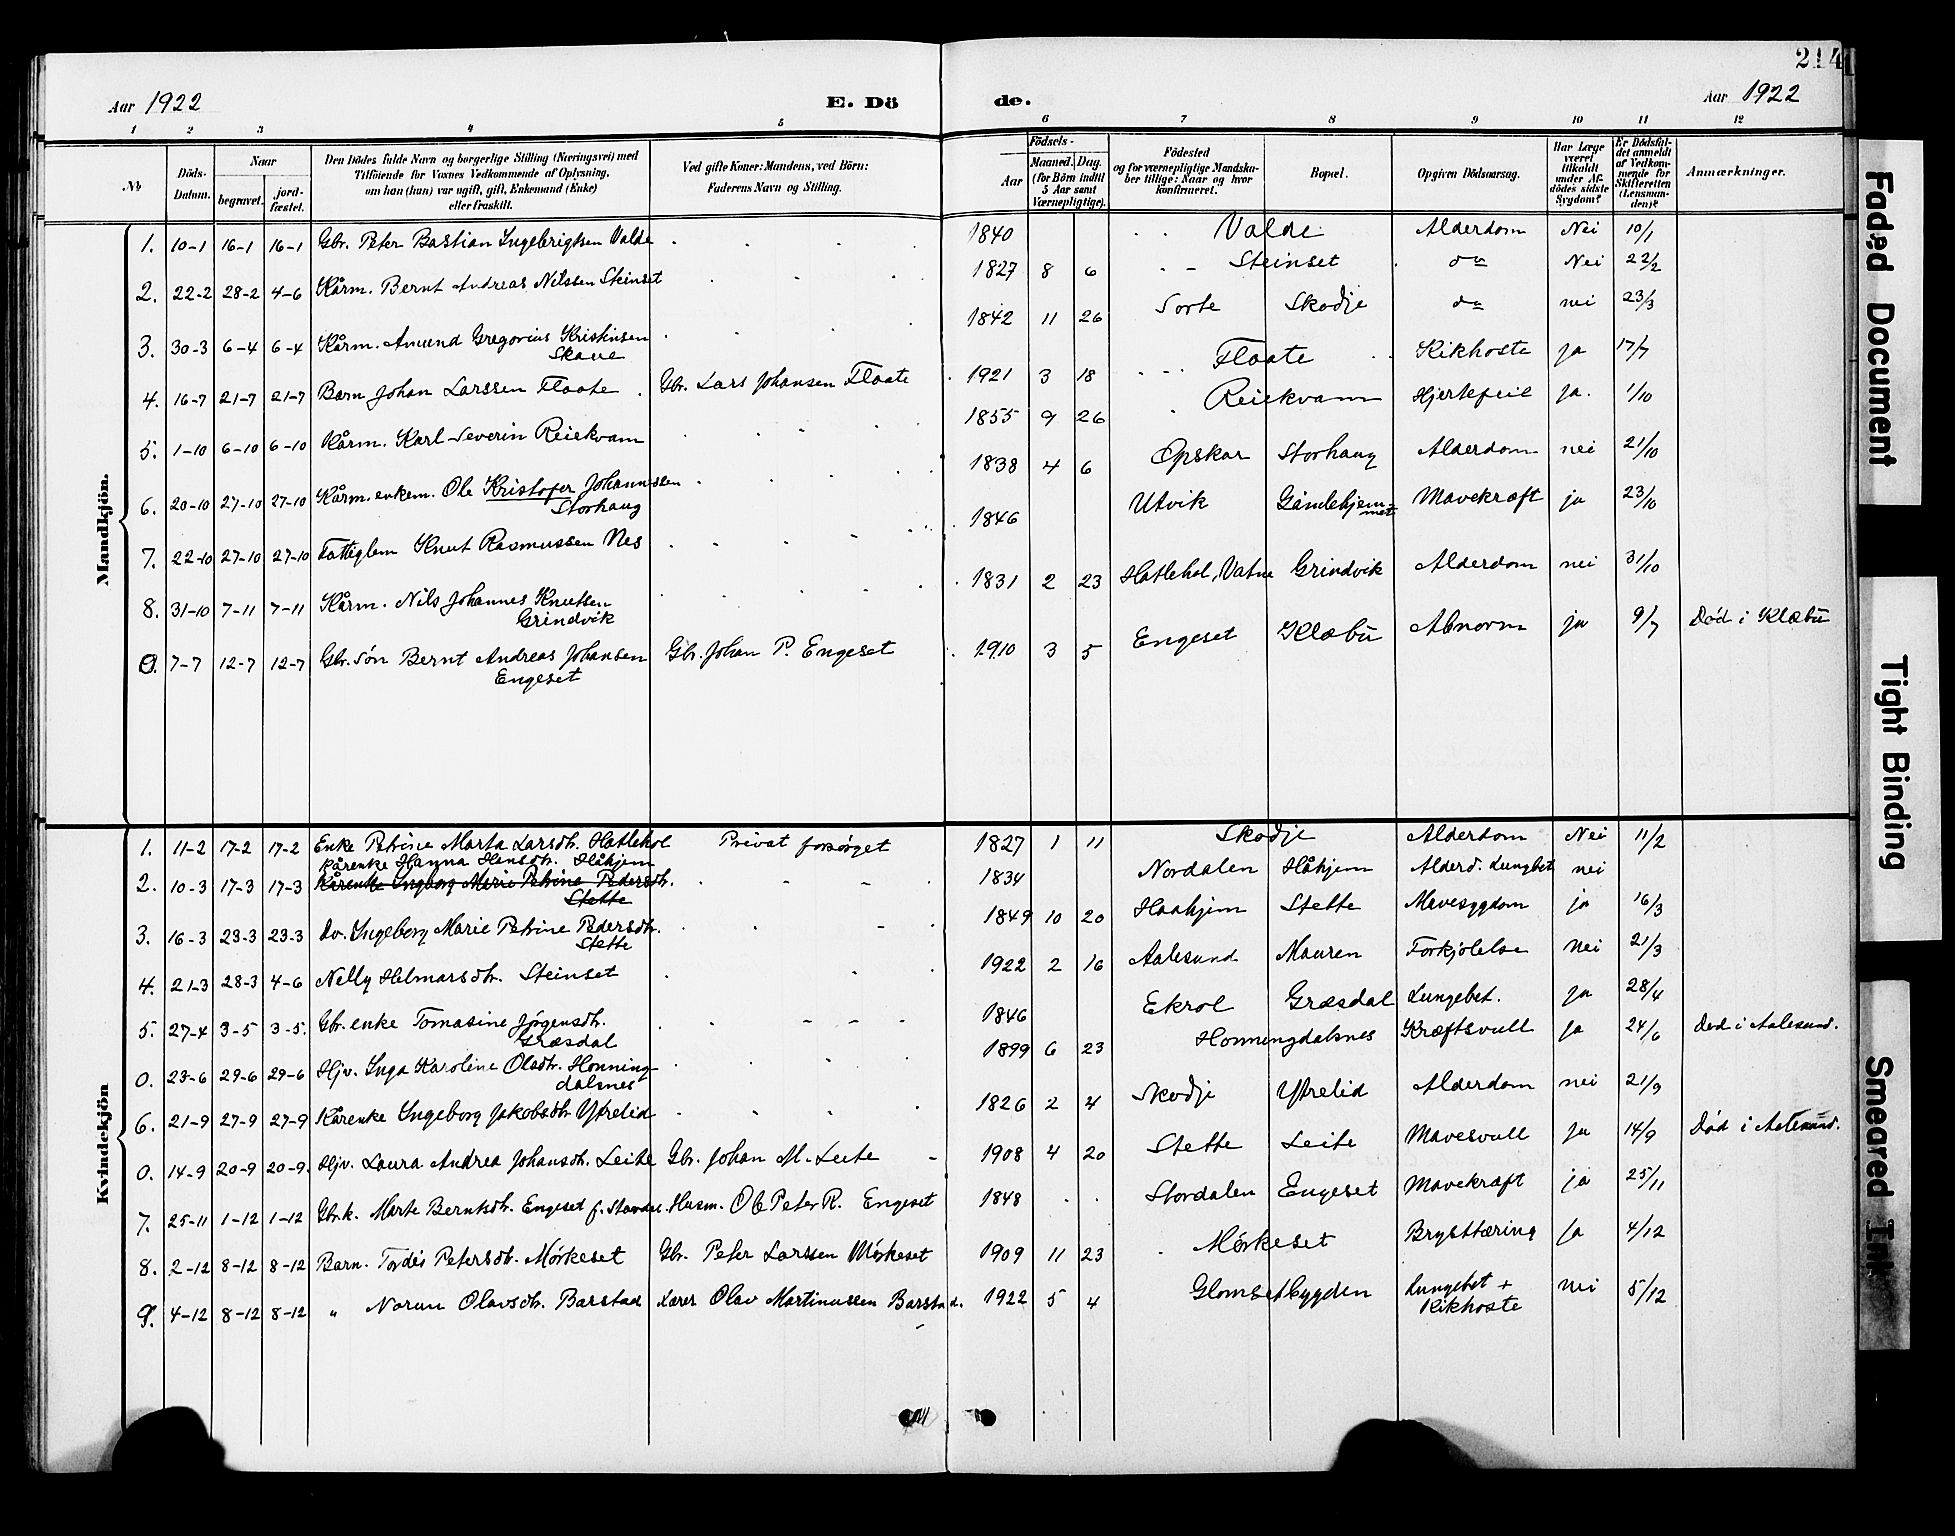 214
Aar 1922
E. Dö de.
Aar 1922
1 2 3 4 5 6 7 8 9 10 11 12
No
Döds-Datum.
Naar
begravet. jord-fæstet.
Den Dödes fulde Navn og borgerlige Stilling (Næringsvei) med
Tilföiende for Voxnes Vedkommende af Oplysning,
om han (hun) var ugift, gift, Enkemand (Enke)
eller fraskilt.
Ved gifte Koner: Mandens, ved Börn:
Faderens Navn og Stilling.
Födsels-
Aar
Maaned. Dag.
(for Börn indtil
5 Aar samt
Værnepligtige).
Födested
og for værnepligtige Mandska-
ber tillige: Naar og hvor
konfirmeret.
Bopæl.
Opgiven Dödsaarsag.
Har Læge
været
tilkaldt
under Af-
dödes sidste
Sygdom?
Er Dödsfal-
det anmeldt
af Vedkom-
mende for
Skifteretten
(Lensman-
den)?
Anmærkninger.
Mandkjön.
1. 10-1 16-1 16-1 Gbr. Peter Bastian Ingebrigtsen Valde 1840 Valde Alderdom Nei 10/1
2. 22-2 28-2 4-6 Kårm. Bernt Andreas Nilssen Steinset 1827 8 6 Steinset do Nei 22/2
3. 30-3 6-4 6-4 Kårm. Amund Gregorius Kristinsen
Skaue 1842 11 26 Sorte Skodje do nei 23/3
4. 16-7 21-7 21-7 Barn Johan Larssen Flaate Gbr. Lars Johansen Flaate 1921 3 18 Flaate Kikhoste ja 17/7
5. 1-10 6-10 6-10 Kårm. Karl Severin Reiekvam 1855 9 26 Reiekvam Hjertefeil ja. 1/10
6. 20-10 27-10 27-10 Kårm. enkem. Ole Kristofer Johannessen
Storhaug 1838 4 6 Opskar Storhaug Alderdom nei 21/10
7. 22-10 27-10 27-10 Fattiglem Knut Rasmussen Nes 1846 Utvik Gamlehjem-
met Mavekræft ja 23/10
8. 31-10 7-11 7-11 Kårm. Nils Johannes Knutsen
Grindvik 1831 2 23 Hatlehol, Vatne Grindvik Alderdom nei 31/10
0. 7-7 12-7 12-7 Gbr. søn Bernt Andreas Johansen
Engeset Gbr. Johan P. Engeset 1910 3 5 Engeset Klæbu Abnorm ja 9/7 Død i Klæbu
Kvindekjön
1. 11-2 17-2 17-2 Enke Petrine Marta Larsdtr. Hatlehol Privat forsørget 1827 1 11 Skodje Alderdom Nei 11/2
Kårenke Hanna Hensdtr. Håhjem
2. 10-3 17-3 17-3 Kårenke Ingborg Marie Petrine Pedersdtr.
Stette 1834 Nordalen Håhjem Alderd. Lungbet nei
3. 16-3 23-3 23-3 do. Ingeborg Marie Petrine Pedersdtr.
Stette 1849 10 20 Haahjem Stette Mavesygdom ja 16/3
4. 21-3 28-3 4-6 Nelly Helmarsdtr. Steinset 1922 2 16 Aalesund Mauren Forkjølelse nei 21/3
5. 27-4 3-5 3-5. Gbr. enke Tomasine Jørgensdtr.
Græsdal 1846 Ekrol Græsdal Lungebet. ja 28/4
0. 23-6 29-6 29-6 Hjv. Inga Karoline Olsdtr. Honning-
dalsnes 1899 6 23 Honningdalsnes Kræftsvull ja 24/6 Død i Aalesund.
6. 21-9 27-9 27-9 Kårenke Ingeborg Jakobsdtr Ytrelid 1826 2 4 Skodje Ytrelid Alderdom nei 21/9
0. 14-9 20-9 20-9. Hjv. Laura Andrea Johansdtr. Leite Gbr. Johan M. Leite 1908 4 20 Stette Leite Mavesvull ja 14/9 Død i Aalesund.
7. 25-11 1-12 1-12 Gbr.k. Marte Berntsdtr. Engeset f. Husm. Ole Peter R. Engeset 1848 Stordalen Engeset Mavekræft ja 25/11
8. 2-12 8-12 8-12 Barn. Tordis Petersdtr. Mørkeset Gbr. Peter Larssen Mørkeset 1909 11 23 Mørkeset Brysttæring ja 4/12
9. 4-12 8-12 8-12 " Norun Olavsdtr. Barstad Lærer Olav Martinussen Barstad. 1922 5 4 Glomsetbygden Lungebet +
Kikhoste nei 5/12
Faded Document
Tight Binding
Smeared Ink